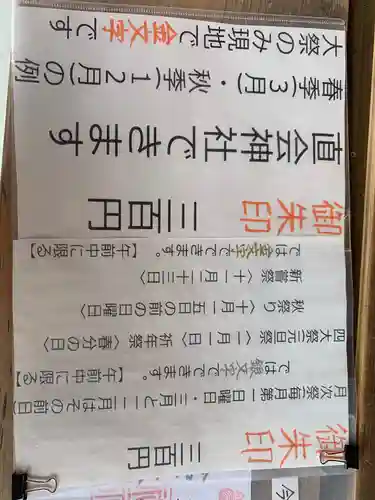 御朱印 三百円
月次祭(毎月第一日曜日・三月と十二月はその前日)
では銀文字でできます。【午前中に限る】
四大祭〈元旦祭〈一月一日〉 祈年祭〈春分の日〉
秋祭り〈十月一五日の前の日曜日〉
新嘗祭〈十一月二十三日〉
では金文字でできます。【午前中に限る】
御朱印 三百円
直会神社できます
春季(3月)・秋季(12月)の例
大祭のみ現地で金文字です
今